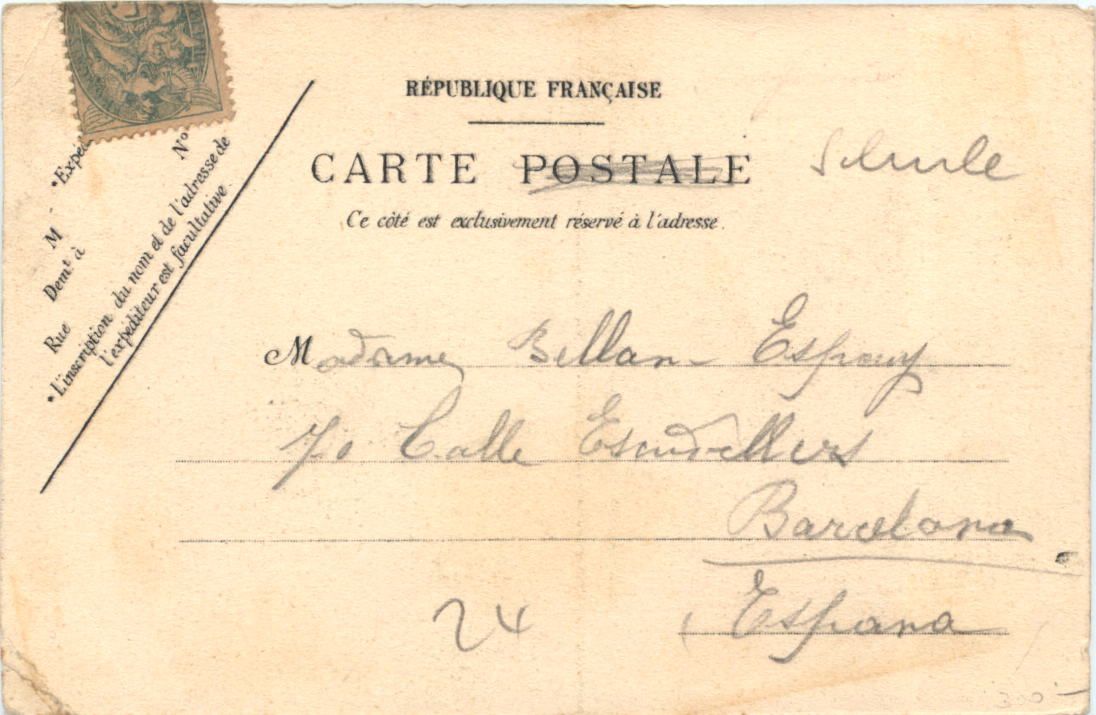 RÉPUBLIQUE FRANÇAISE
CARTE POSTALE
Ce côté est exclusivement réservé à l'adresse.
N°
M
Demt à
Rue
*L'inscription du nom et de l'adresse de
l'expéditeur est facultative
Madame Billan- Espouy
70 Calle Escudillers
Barcelona
España
24
300-